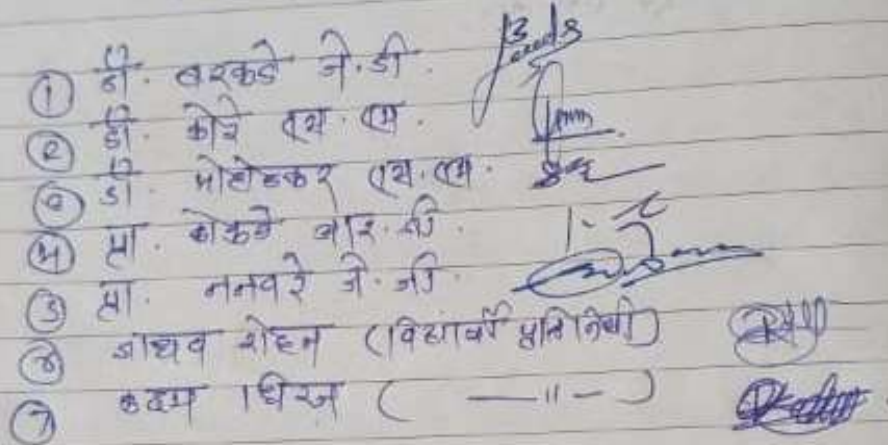 ① डॉ. बरकडे जे.डी.
② डॉ. कोरे एस.एम.
③ डॉ. मोहोळकर एस.एम.
④ प्रा. कोकणे आर.बी.
⑤ प्रा. ननवरे जे.जी.
⑥ जाधव रोहन (विद्यार्थी प्रतिनिधी)
⑦ कदम धिरज ( —〃— )